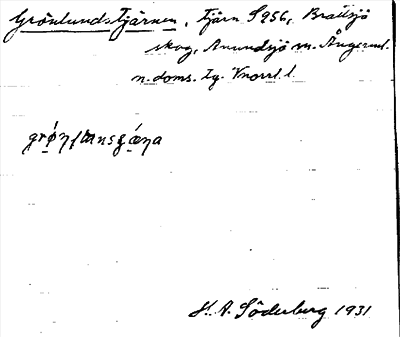 Grönlundstjärnen, Tjärn S956, Brattsjö
skog, Anundsjö sn. Ångerml.
n. doms. Tg. Vnorrl. l.
H. A. Söderberg 1931